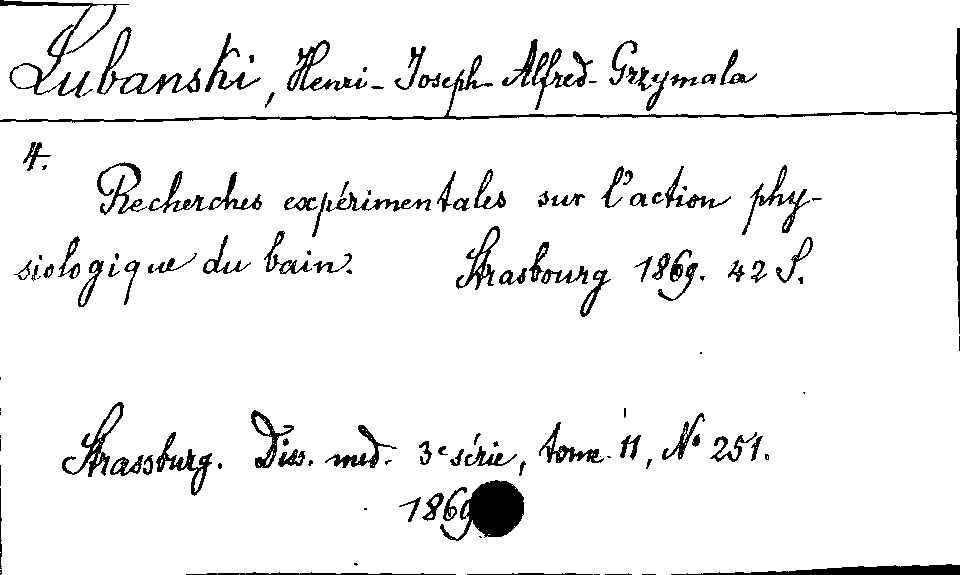 Lubanski, Henri-Joseph-Alfred-Grzymala
4.
Recherches expérimentales sur l'action phy-
siologique du bain. Strasbourg 1869. 42 S.
Strassburg. Diss. med. 3e série, tome 11, No 251.
1869